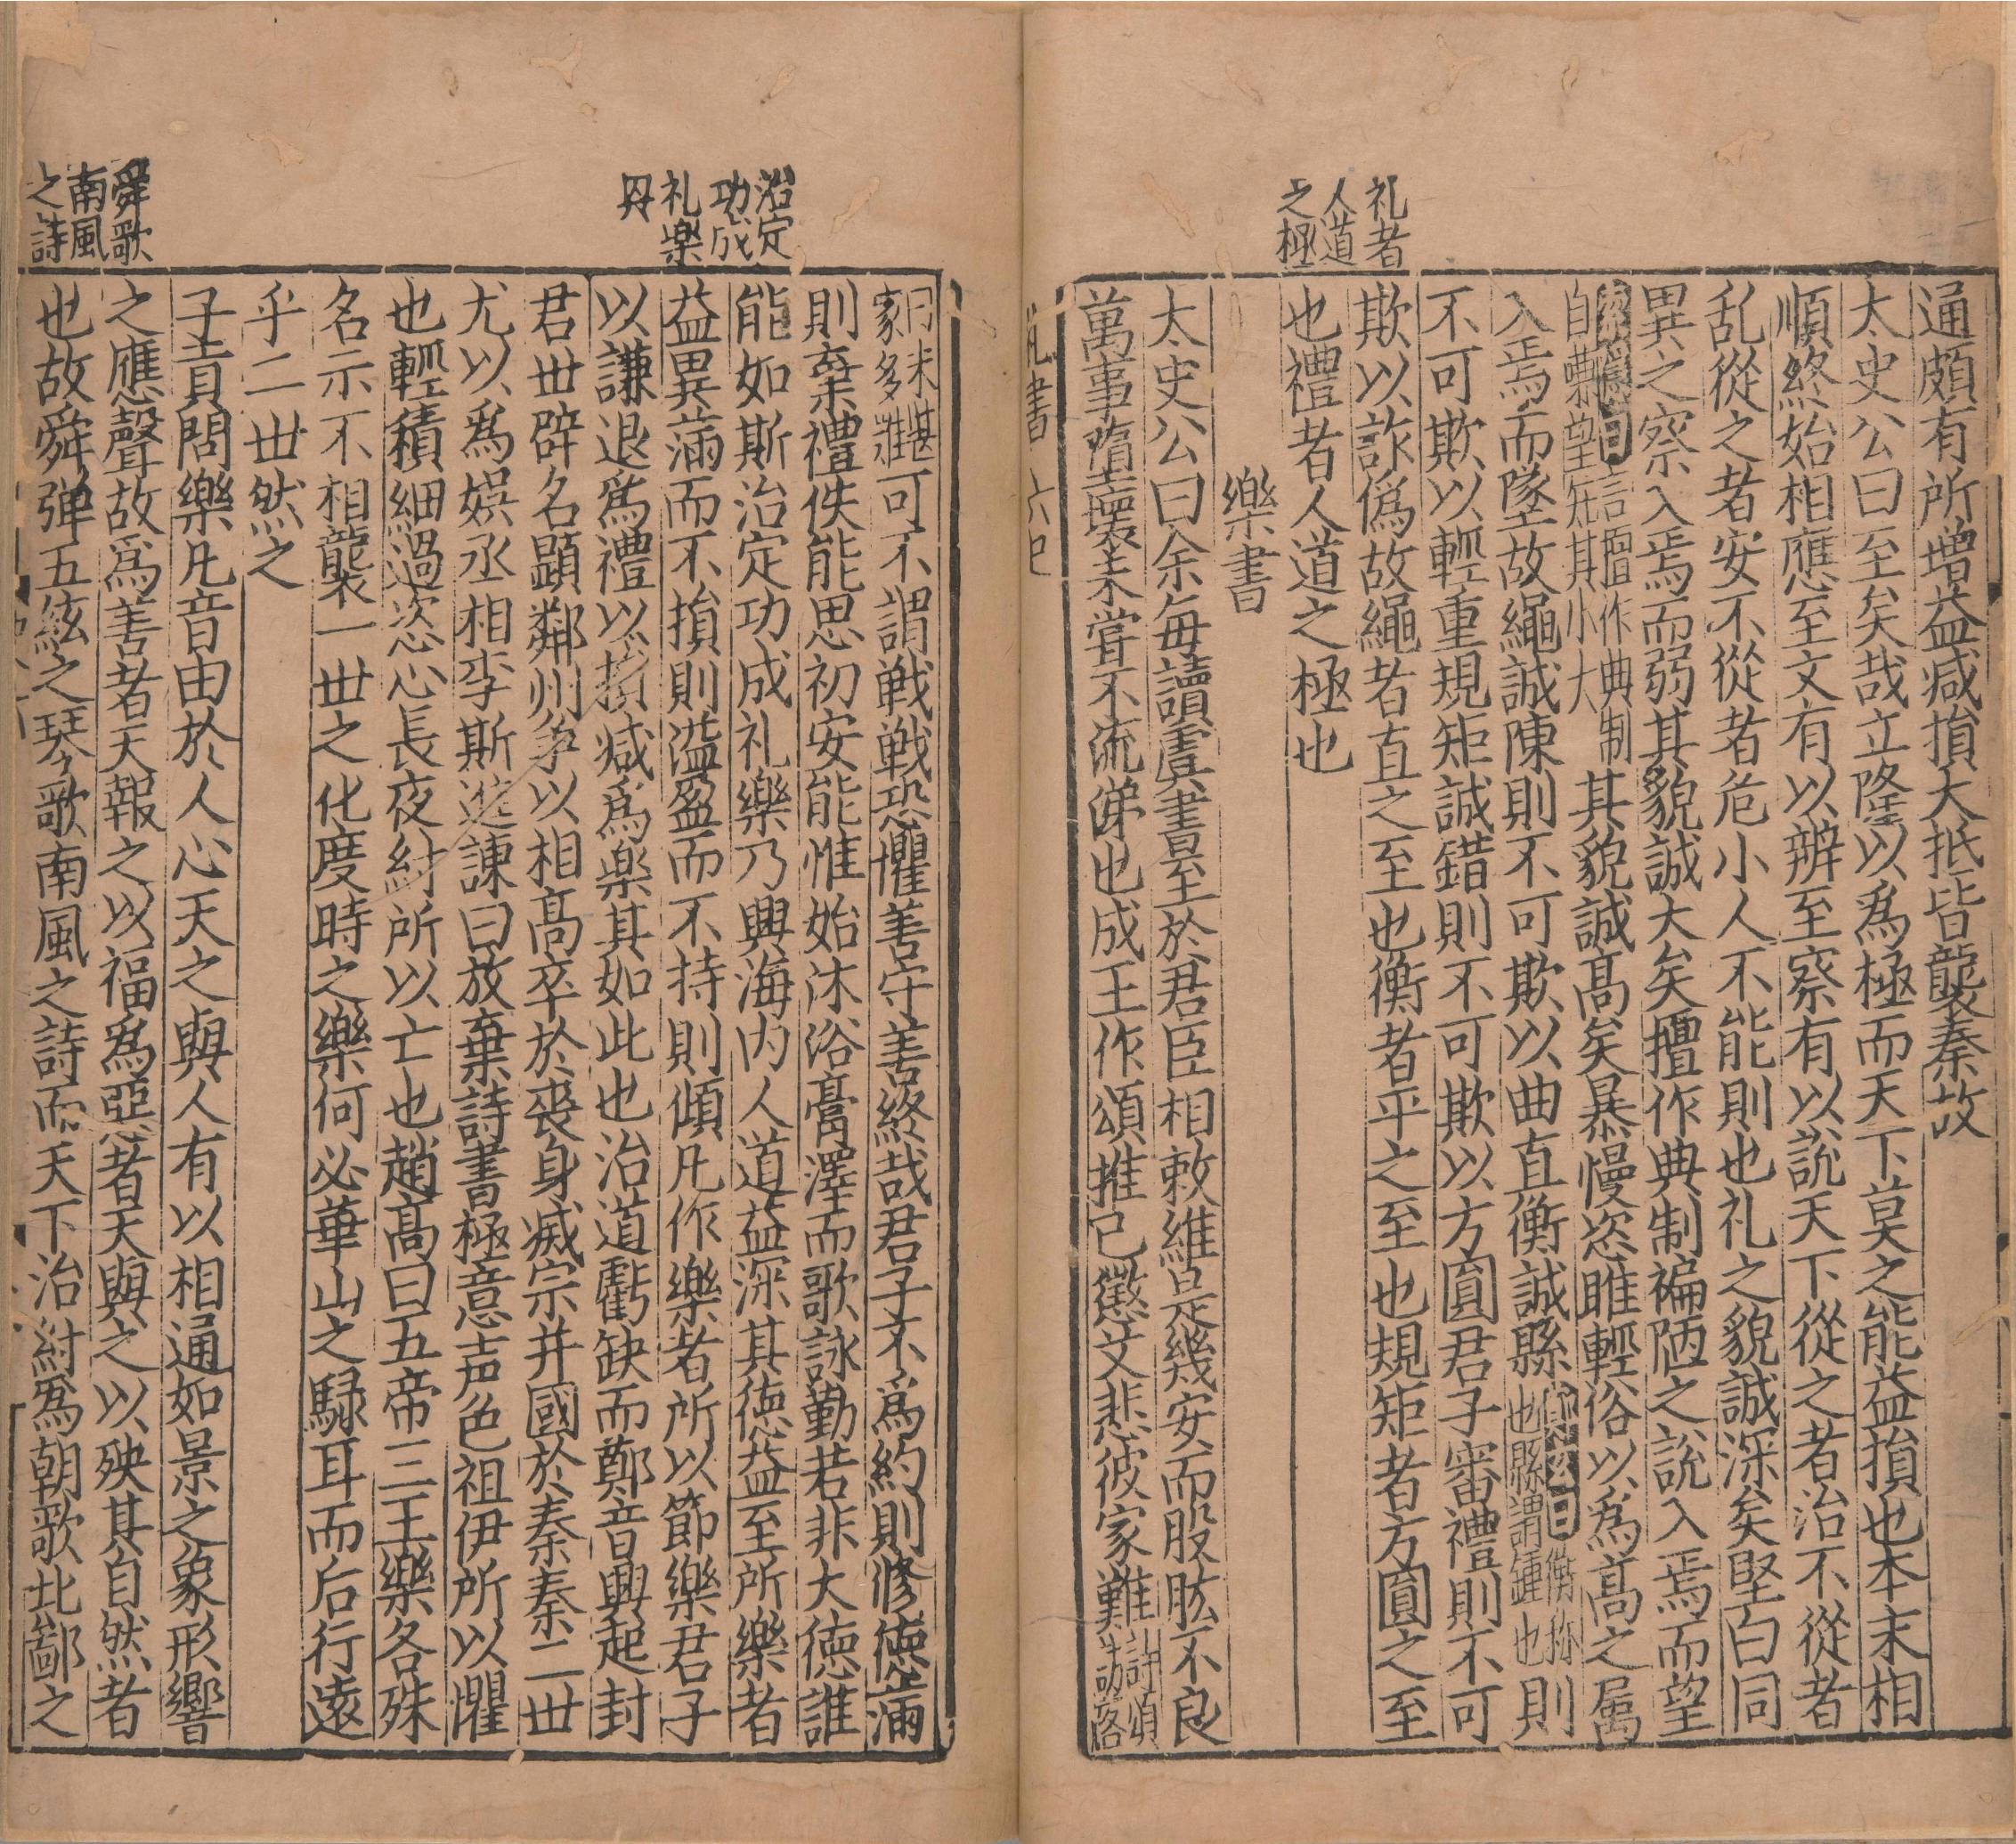 礼者
人道
之極
通頗有所增益减損大抵皆襲秦故
太史公曰至矣哉立隆以爲極而天下莫之能益損也本末相
順終始相應至文有以辨至察有以說天下從之者治不從者
乱從之者安不從者危小人不能則也礼之貌誠深矣堅白同
異之察入焉而弱其貌誠大矣擅作典制褊陋之說入焉而望
索隱曰言擅作典制
自嗛望知其小大
其貌誠高矣暴慢恣睢輕俗以爲高之属
入焉而墜故繩誠陳則不可欺以曲直衡誠縣
曰衡称
也縣謂錘也
則
不可欺以輕重規矩誠錯則不可欺以方圓君子審禮則不可
欺以詐僞故繩者直之至也衡者平之至也規矩者方圓之至
也禮者人道之極也
樂書
太史公曰余每讀虞書至於君臣相敕維是幾安而股肱不良
萬事墮壞未嘗不流涕也成王作頌推己懲艾悲彼家難
詩頌
訪落
礼書
治定
功成
礼樂
舜歌
南風
之詩
未堪
家多難
可不謂戰戰恐懼善守善終哉君子不爲約則修德滿
則棄禮佚能思初安能惟始沐浴膏澤而歌詠勤若非大德誰
能如斯治定功成礼樂乃興海内人道益深其德益至所樂者
益異滿而不損則溢盈而不持則傾凡作樂者所以節樂君子
以謙退爲禮以損减爲樂樂其如此也治道虧缺而鄭音興起封
君世辟名顕鄰州爭以相高卒於喪身滅宗并國於秦秦二世
尤以爲娯丞相李斯進諫曰放棄詩書極意声色祖伊所以懼
也輕積細過恣心長夜紂所以亡也趙高曰五帝三王樂各殊
名示不相襲一世之化度時之樂何必華山之騄耳而后行遠
乎二世然之
子貢問樂凡音由於人心天之與人有以相通如景之象形響
之應聲故爲善者天報之以福爲惡者天與之以殃其自然者
也故舜弹五絃之琴歌南風之詩而天下治紂爲朝歌北鄙之